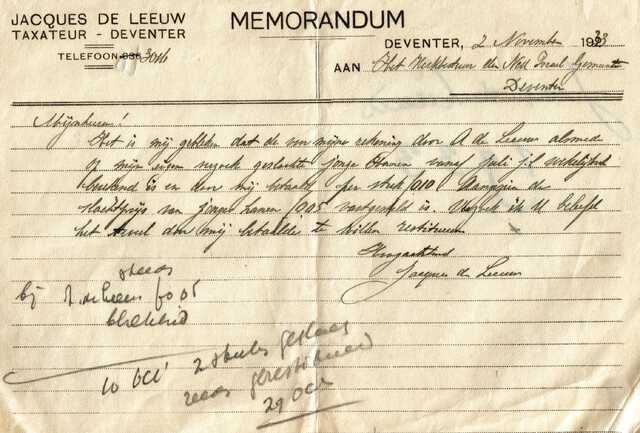 JACQUES DE LEEUW
TAXATEUR - DEVENTER
TELEFOON 3016
MEMORANDUM
DEVENTER, 2 November 1933
AAN Het Kerkbestuur der Ned Israel Gemeente
Deventer
Mijneheeren!
Het is mij gebleken dat de voor mijne rekening door A de Leeuw alsmede
op mijn eigen verzoek geslachte jonge Hanen vanaf Juli j.l.
berekend is en door mij betaald per stuk f 0 10 Aangezien de
slachtprijs van jonge hanen f 0.05 vastgesteld is, Verzoek ik U beleefd
het teveel door mij betaalde te willen restitueeren
Hoogachtend
Jacques de Leeuw
steeds
bij de Leeuw f 0 05
berekend
10 Oct 2 stuks geslacht
reeds gerestitueerd
29 Oct